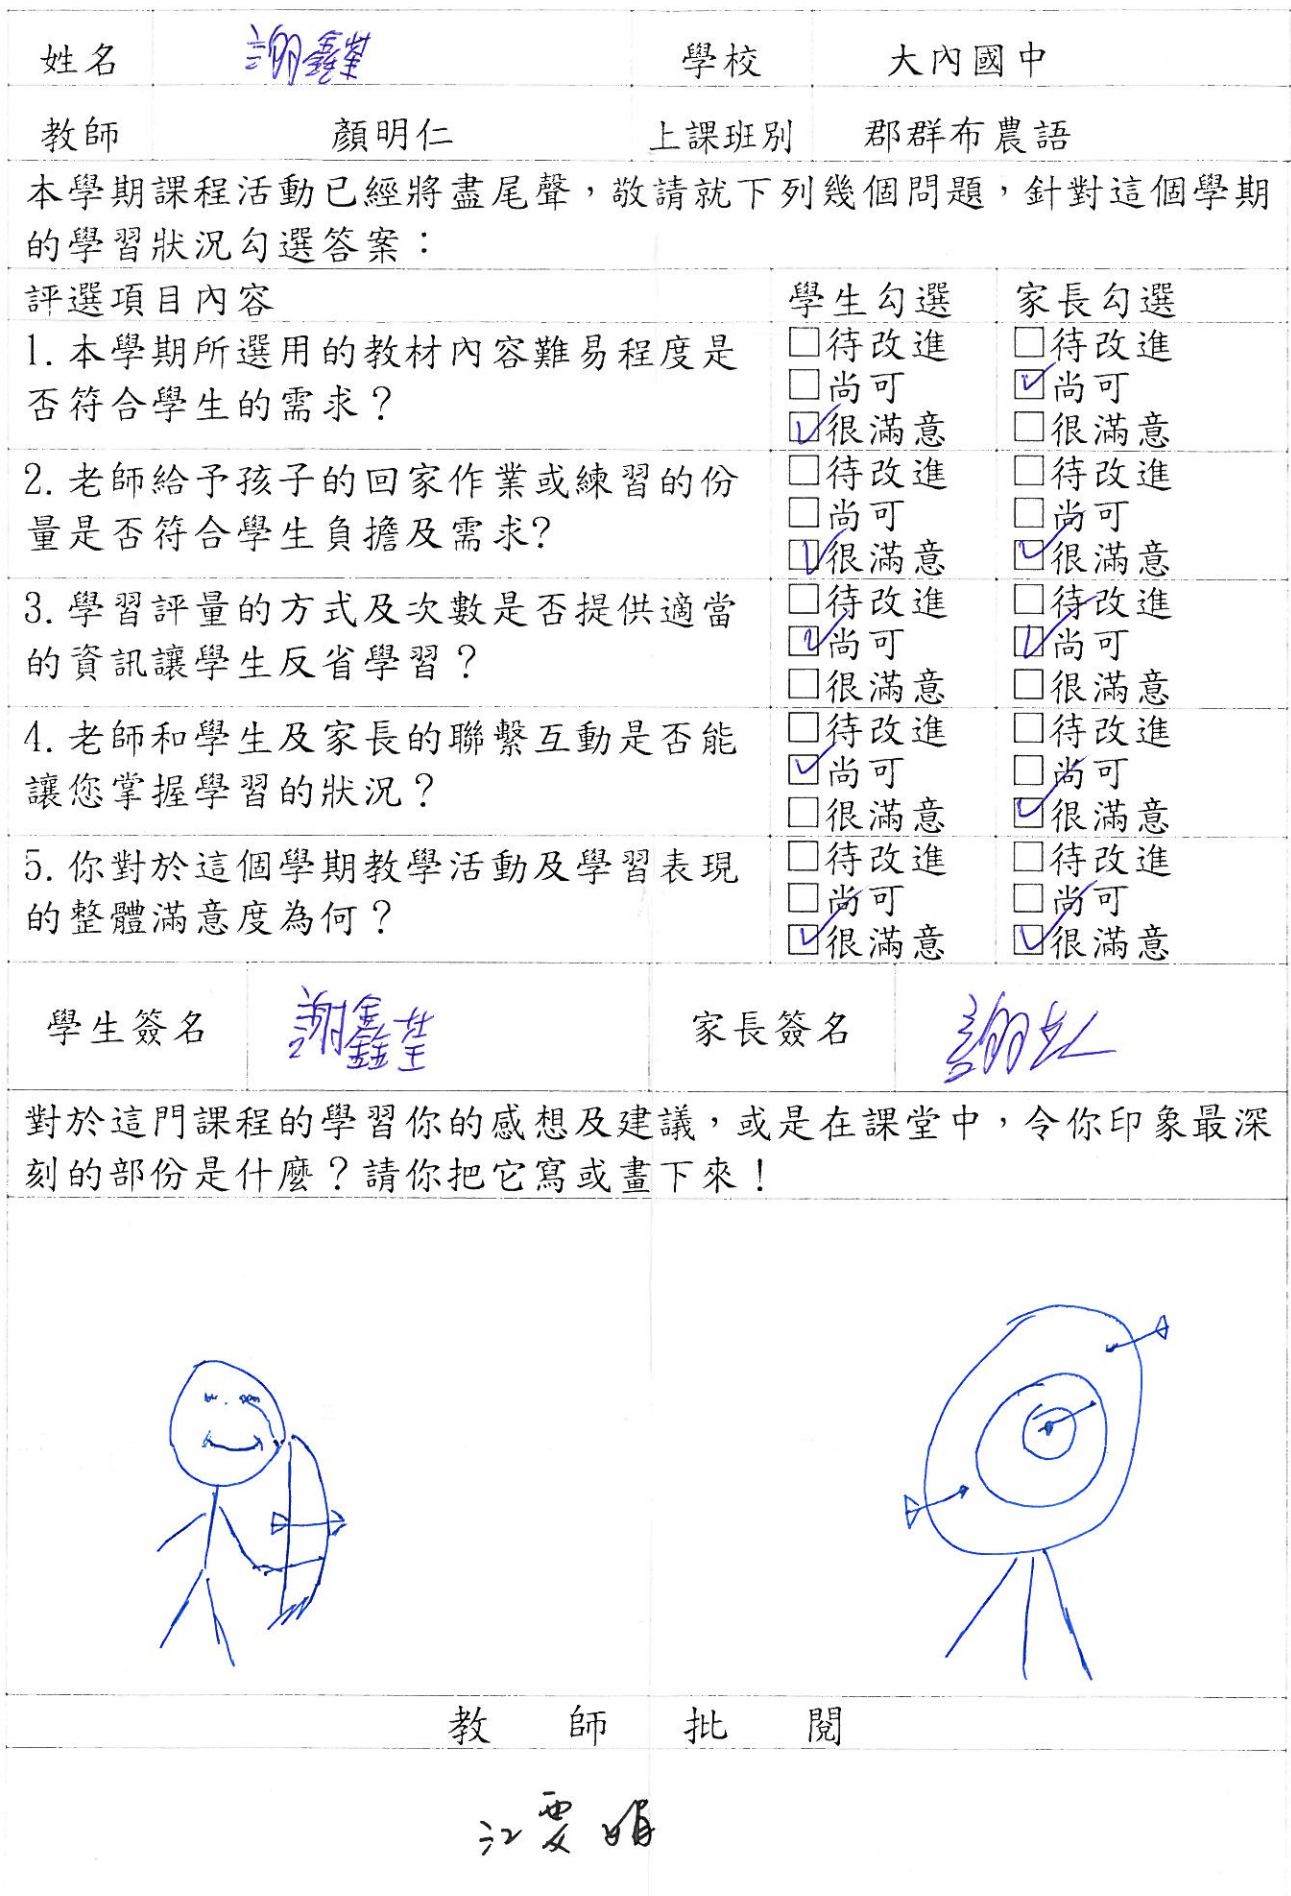 姓名 謝鑫 學校 大內國中
教師 顏明仁 上課班別 郡群布農語
本學期課程活動已經將盡尾聲，敬請就下列幾個問題，針對這個學期
的學習狀況勾選答案：
評選項目內容 學生勾選 家長勾選
1.本學期所選用的教材內容難易程度是
否符合學生的需求？
□待改進 □待改進
□尚可 ☑尚可
☑很滿意 □很滿意
2.老師給予孩子的回家作業或練習的份
量是否符合學生負擔及需求?
□待改進 □待改進
□尚可 □尚可
☑很滿意 ☑很滿意
3.學習評量的方式及次數是否提供適當
的資訊讓學生反省學習？
□待改進 □待改進
☑尚可 ☑尚可
□很滿意 □很滿意
4.老師和學生及家長的聯繫互動是否能
讓您掌握學習的狀況？
□待改進 □待改進
☑尚可 □尚可
□很滿意 ☑很滿意
5.你對於這個學期教學活動及學習表現
的整體滿意度為何？
□待改進 □待改進
□尚可 □尚可
☑很滿意 ☑很滿意
學生簽名 謝鑫 家長簽名 謝
對於這門課程的學習你的感想及建議，或是在課堂中，令你印象最深
刻的部份是什麼？請你把它寫或畫下來！
教師批閱
江雯娟